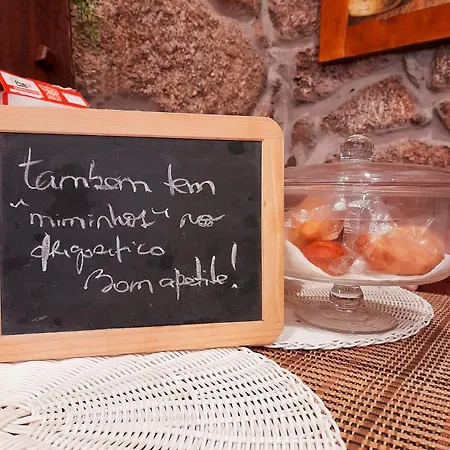 também tem
"miminhos" no
frigorifico
Bom apetite!